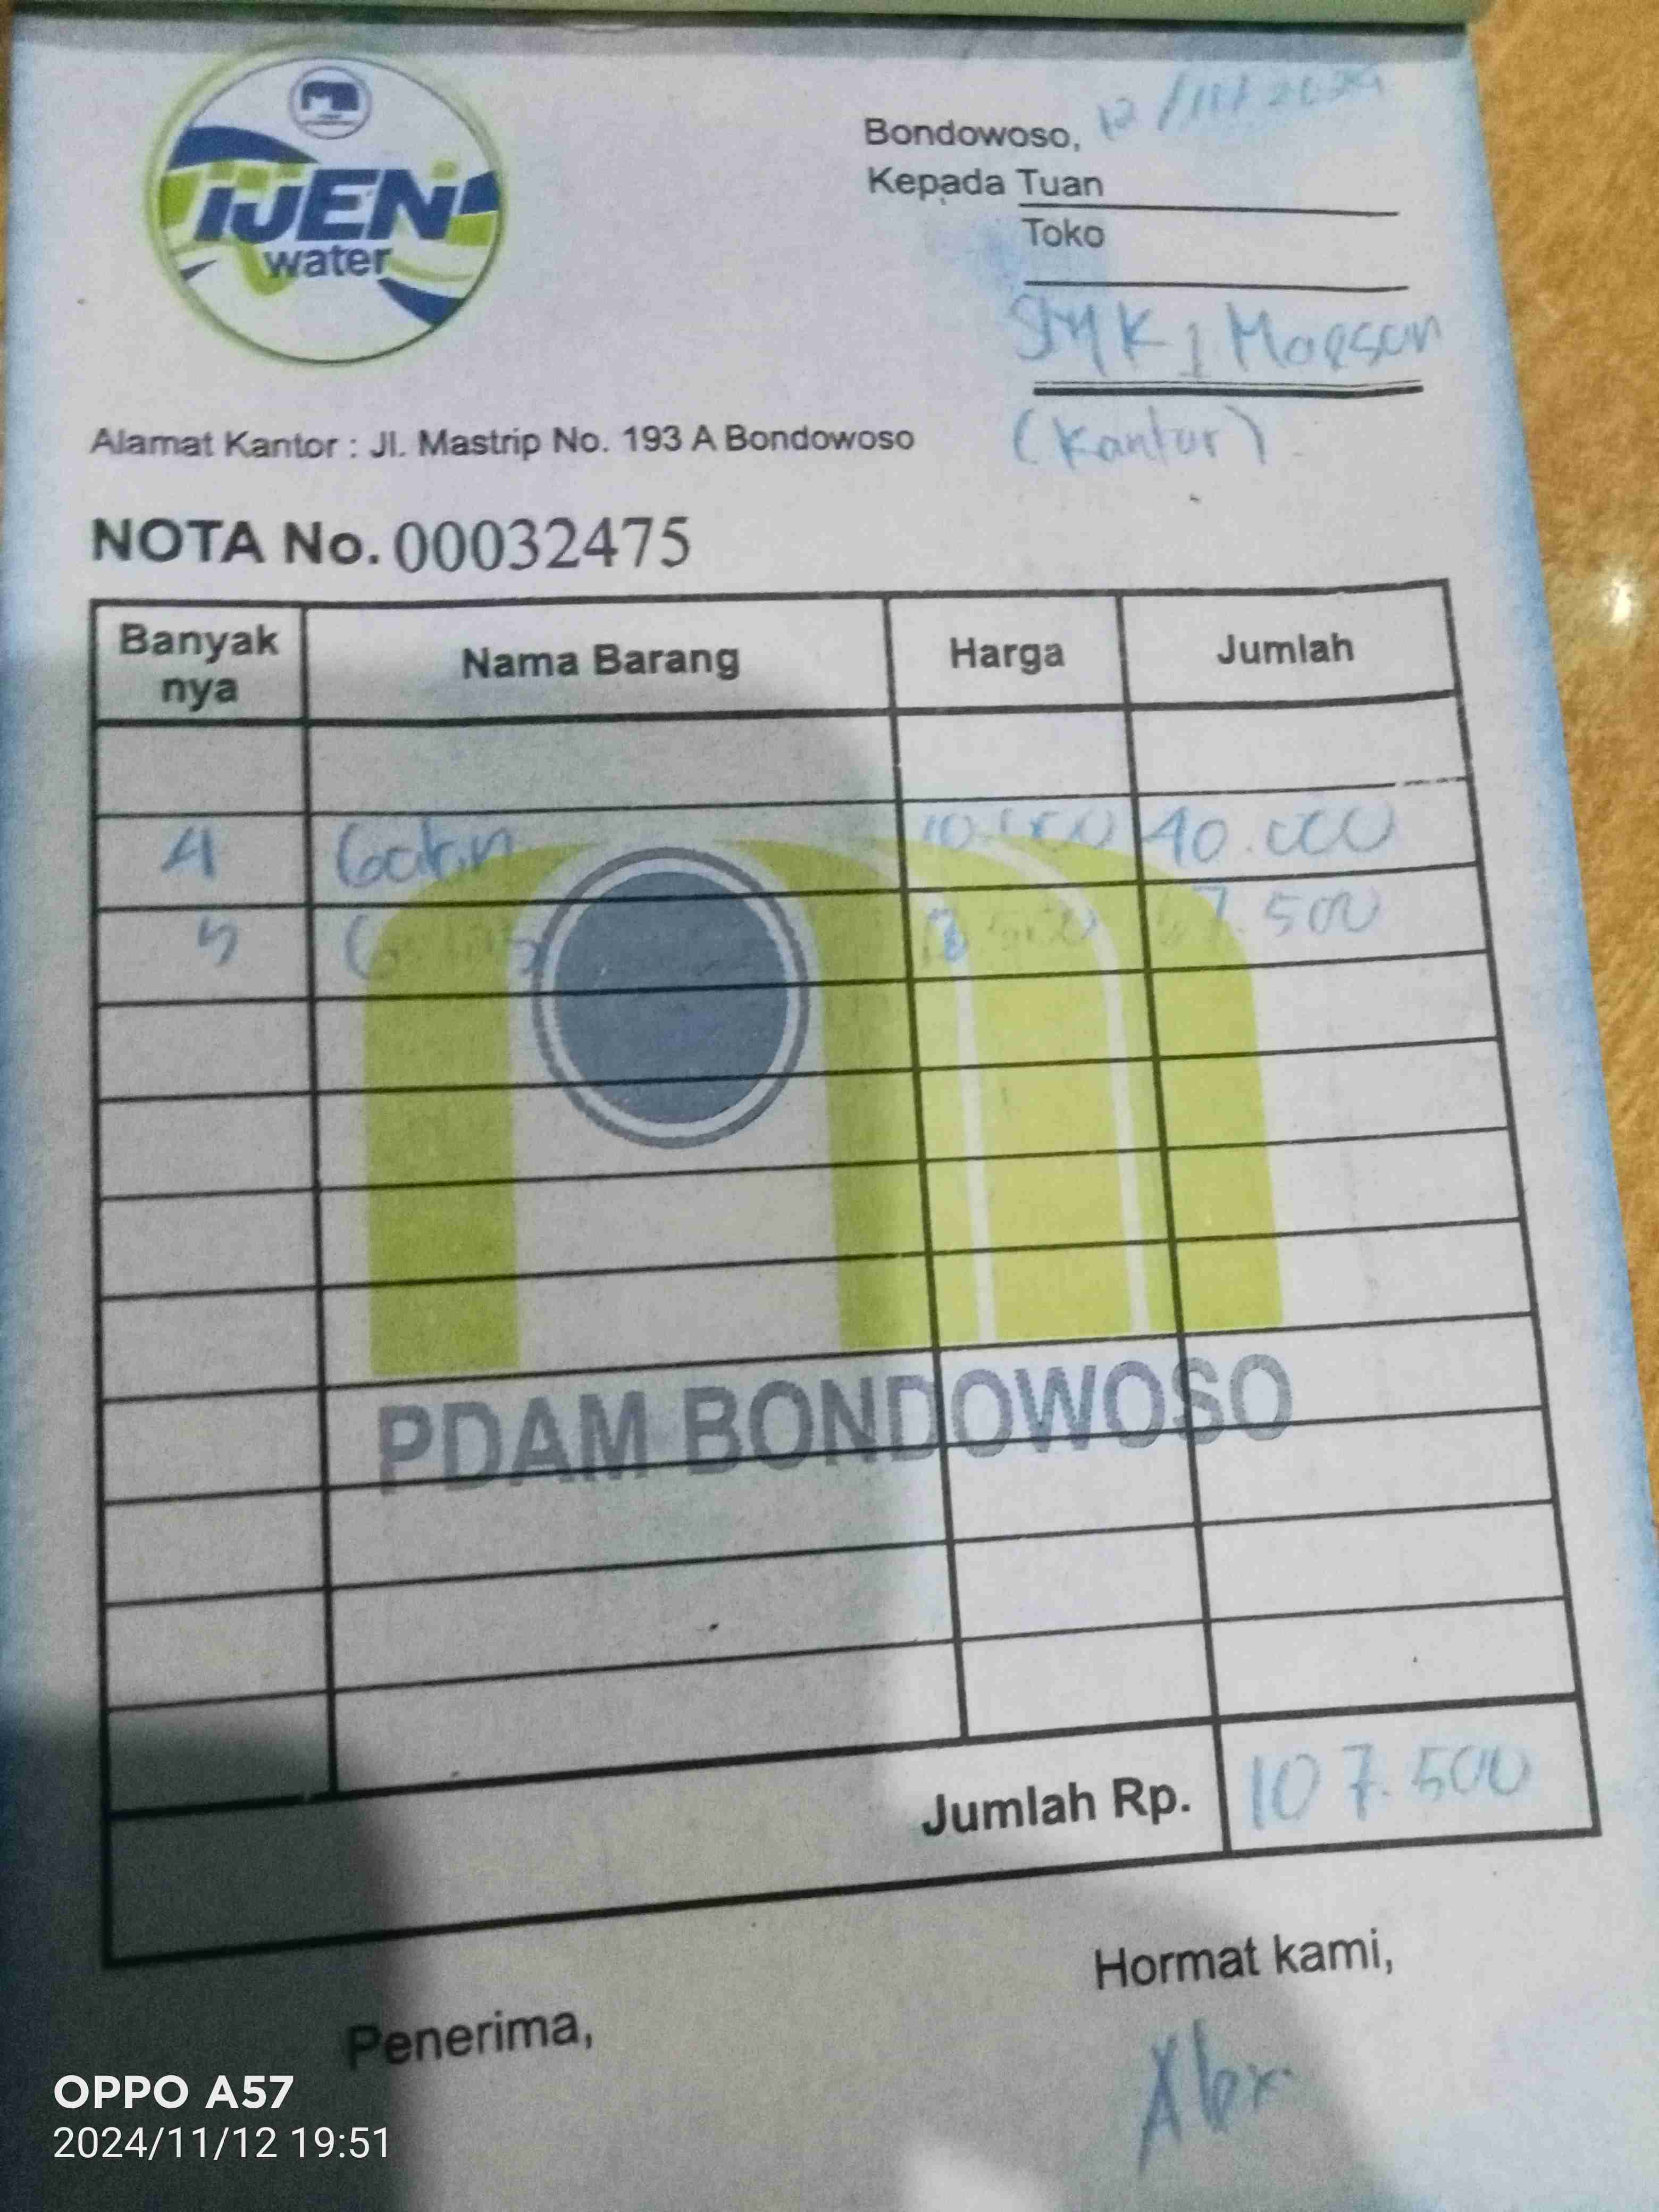 IJEN
water
Bondowoso, 12/11/2024
Kepada Tuan
Toko
SMK 1 Maesan
(Kantor)
Alamat Kantor : Jl. Mastrip No. 193 A Bondowoso
NOTA No. 00032475
Banyak nya Nama Barang Harga Jumlah
4 Galon 10.000 40.000
5 13.500 67.500
PDAM BONDOWOSO
Jumlah Rp. 107.500
Hormat kami,
Penerima,
Alex
OPPO A57
2024/11/12 19:51